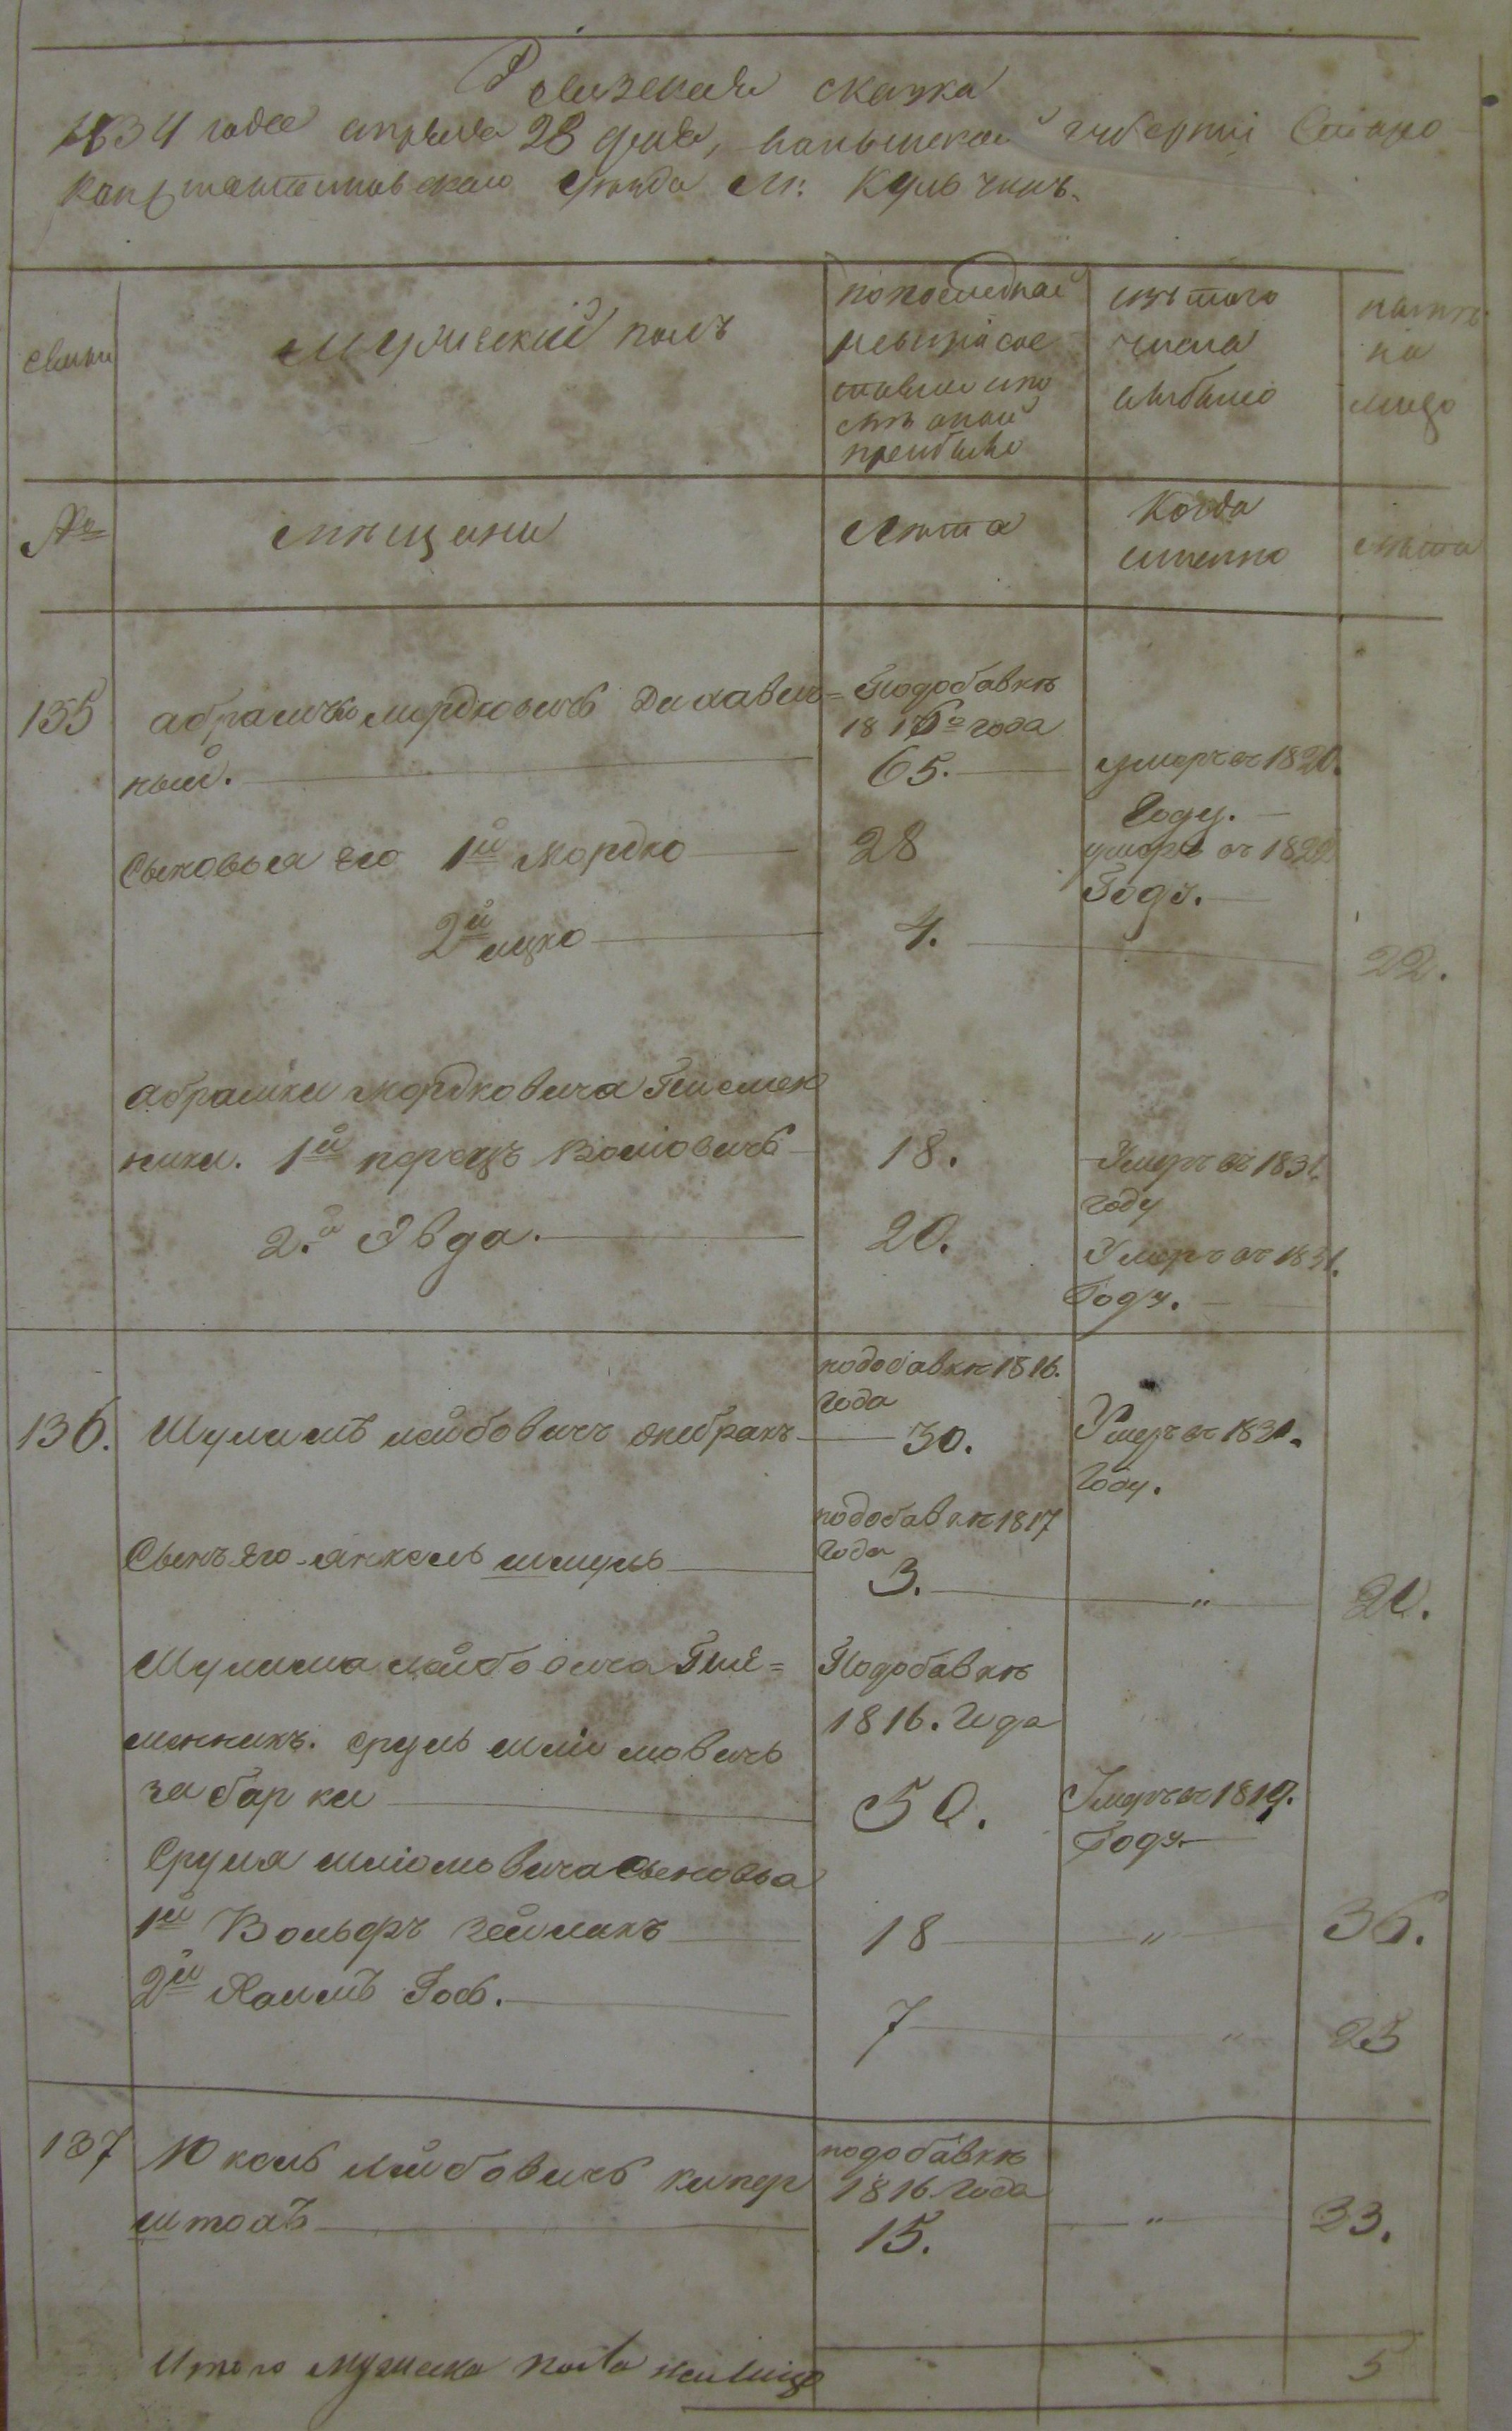 Ревизская сказка
1834 года апреля 28 дня, Волынской губернии Старо
Константиновскаго уезда м. Кульчинъ.
семьи
мужеский полъ
по последней
ревизии сос
тояло и по
слъ оной
прибыло
изъ того
числа
выбыло
нынъ
на
лицо
№
мъщани
Лъта
Когда
именно
лъта
135
абрашко мордковичъ =
ный.
Подобавкъ
1816го года
65.
умеръ въ 1820.
Году.
Сыновья его 1й мордко
28
умеръ въ 182
Году.
2й ицко
4.
22.
абрашки мордковича Племен
ники. 1й перецъ Волiовичъ
18.
Умеръ въ 1831.
году
2.й Явда.
20.
Умеръ въ 1831.
Году.
136.
Шулимъ лейбовичъ
подобавкъ 1816.
года
30.
Умеръ въ 1831.
Году.
Сынъ его янкель шмуль
подобавкъ 1817
года
3.
"
21.
Шулима лейбовича Пле=
менникъ. Сруль шлiомовичъ
забарки
Подобавкъ
1816. Года
50.
Умеръ въ 1819.
Году.
Сруля шлiомовича Сыновья
1й Вольфъ зейманъ
18
"
36.
2й Хаимъ Гоф.
7
"
25
137
Юкель лейбовичъ купер
штохъ
подобавкъ
1816 Года
15.
"
33.
Итого мужеска пола на лицо
5